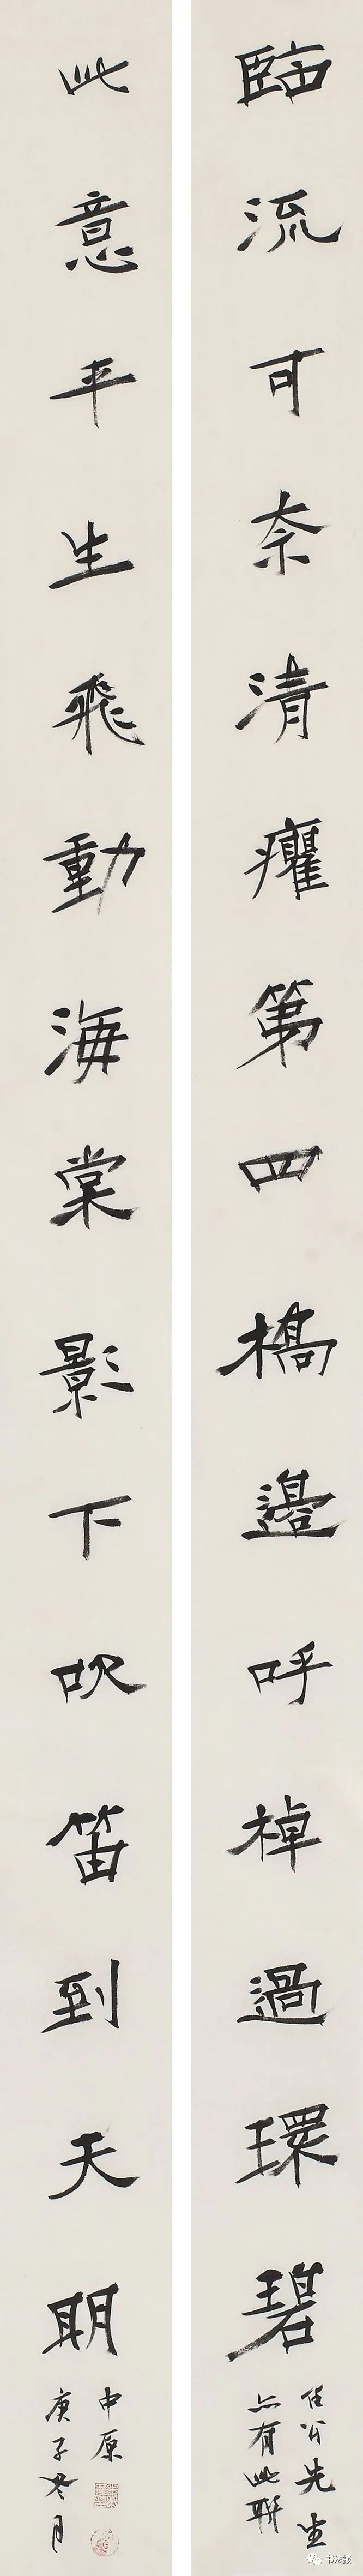 臨流可奈清癯第四橋邊呼棹過環碧
任公先生
亦有此聯
此意平生飛動海棠影下吹笛到天明
中原
庚子冬月
书法报